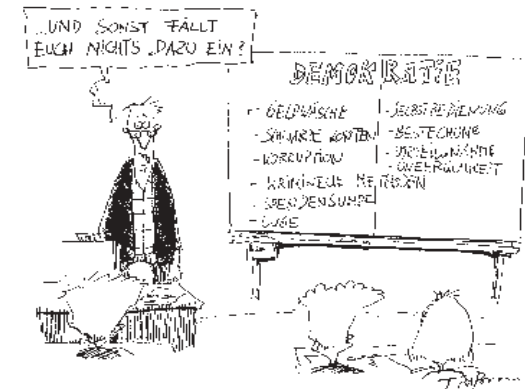 ...UND SONST FÄLLT
EUCH NICHTS DAZU EIN?
DEMOKRATIE
- GELDWÄSCHE
- SCHWARZE KONTEN
- KORRUPTION
- KRIMINELLE METHODEN
- SPENDENSUMPF
- LÜGE
- SELBSTBEDIENUNG
- BESTECHUNG